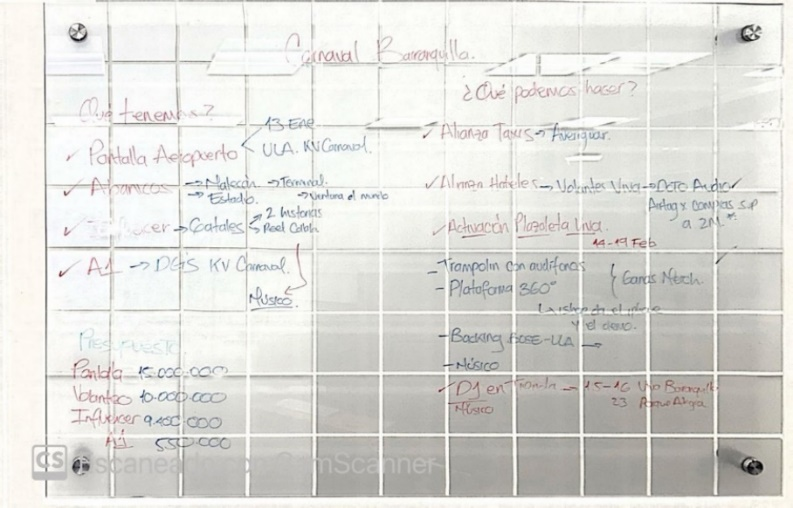 Carnaval Barranquilla.
¿Qué tenemos?
13 Ene
✓ Pantalla Aeropuerto < ULA. KV Carnaval.
✓ Abanicos → Malecón → Terminal.
→ Estadio. → Ventana al mundo
→ 2 historias
→ Reel Colab
✓ A1 → DGS KV Carnaval.
Músico.
PRESUPUESTO
Pantalla 15.000.000
Volanteo 10.000.000
Influencer 9.400.000
A1 550.000
¿Qué podemos hacer?
✓ Alianza Taxis → Averiguar.
✓ Alianza Hoteles → Volantes Viva → DCTO Audio ✓
x compras
a 2M *
✓ Activación Plazoleta Viva
14-19 Feb
- Trampolín con audífonos
- Plataforma 360° } Ganas Merch.
y el
- Backing BOSE-ULA →
- Músico
✓ DJ en - 15-16 Viva Barranquilla
Músico 23 Parque Alegra
CS Escaneado con CamScanner